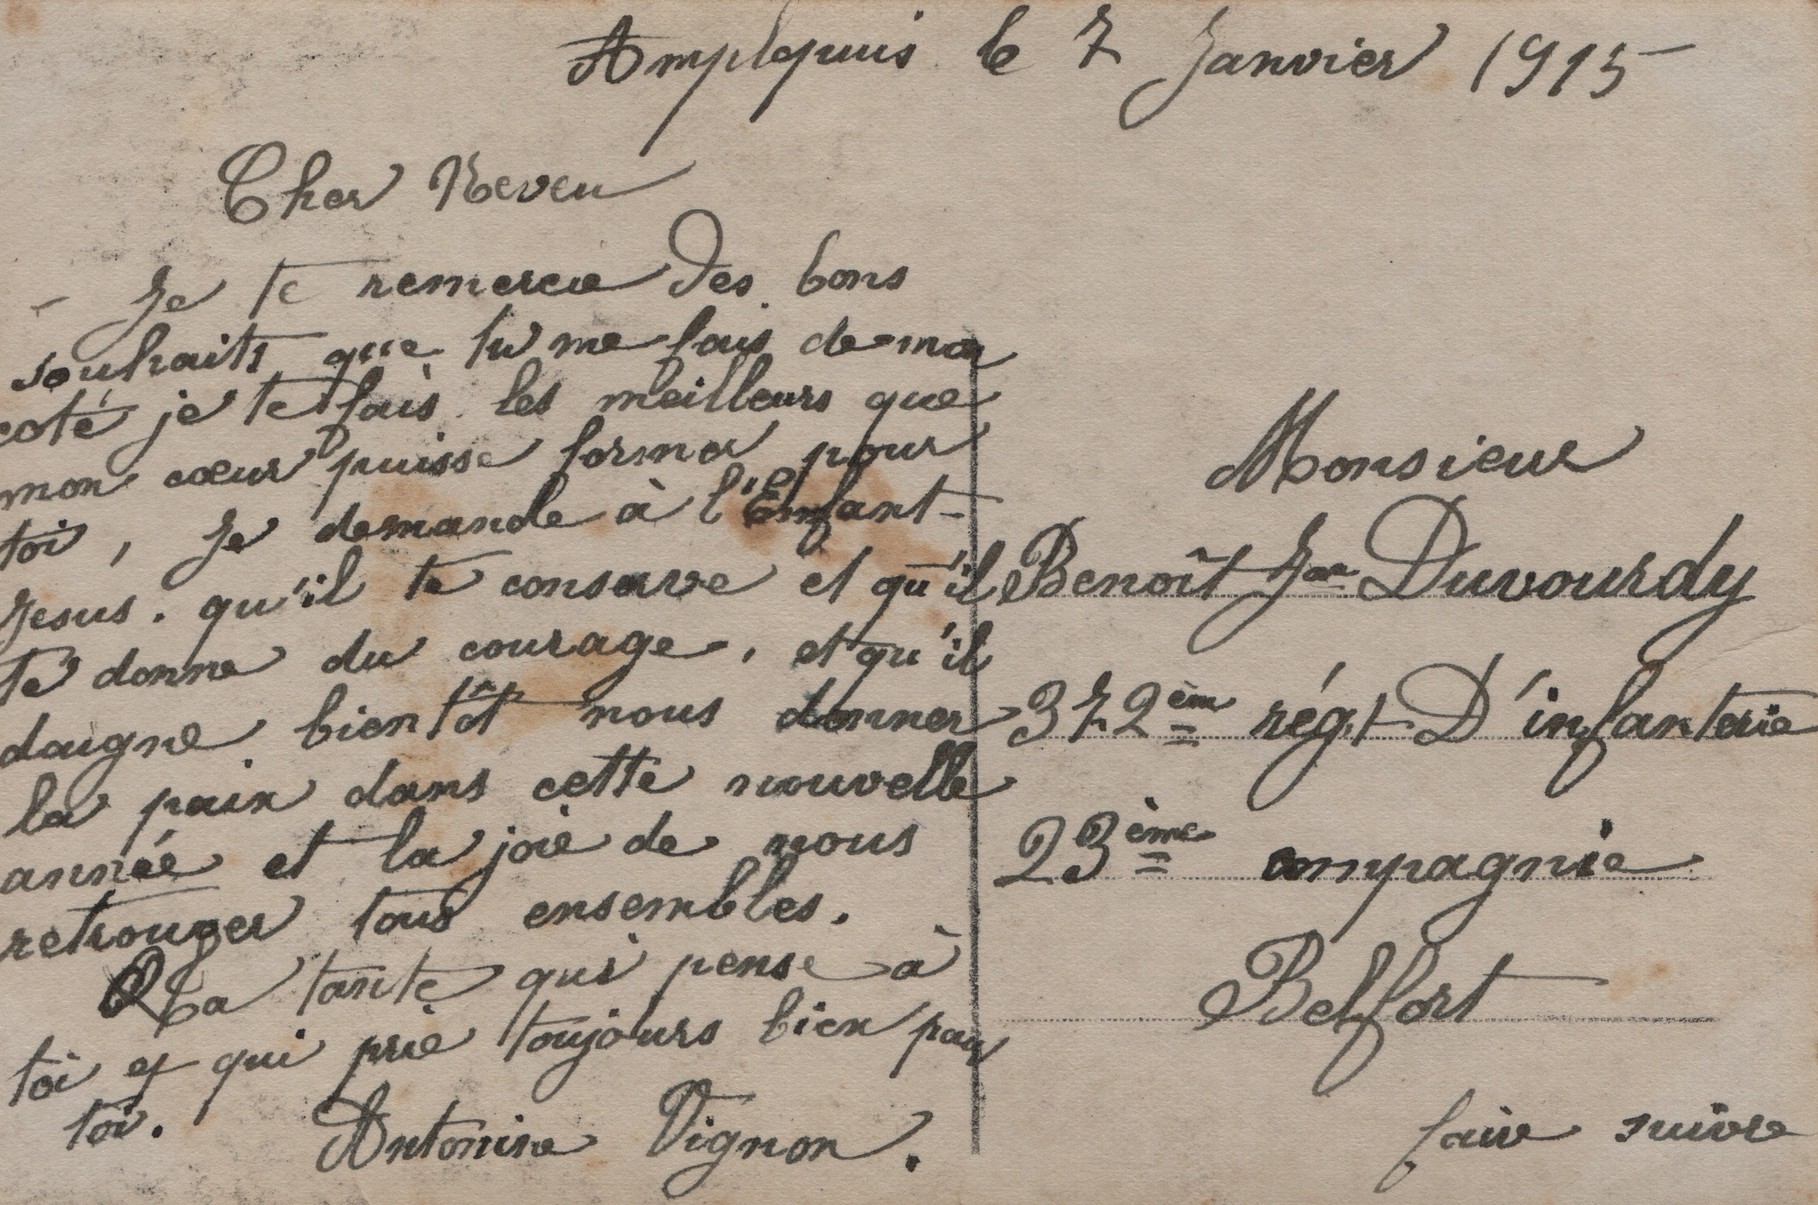 Amplepuis le 7 Janvier 1915
Cher Neveu
- Je te remercie des bons
souhaits que tu me fais de mon
coté je te fais les meilleurs que
mon cœur puisse former pour
toi, Je demande à l'Enfant-
Jesus. qu'il te conserve et qu'il
te donne du courage, et qu'il
daigne bientôt nous donner
la paix dans cette nouvelle
année et la joie de nous
retrouver tous ensembles.
Ta tante qui pense à
toi et qui prie toujours bien pour
toi.
Antonine Vignon.
Monsieur
Benoît Duvourdy
372ème régt D'infanterie
23ème compagnie
Belfort
faire suivre